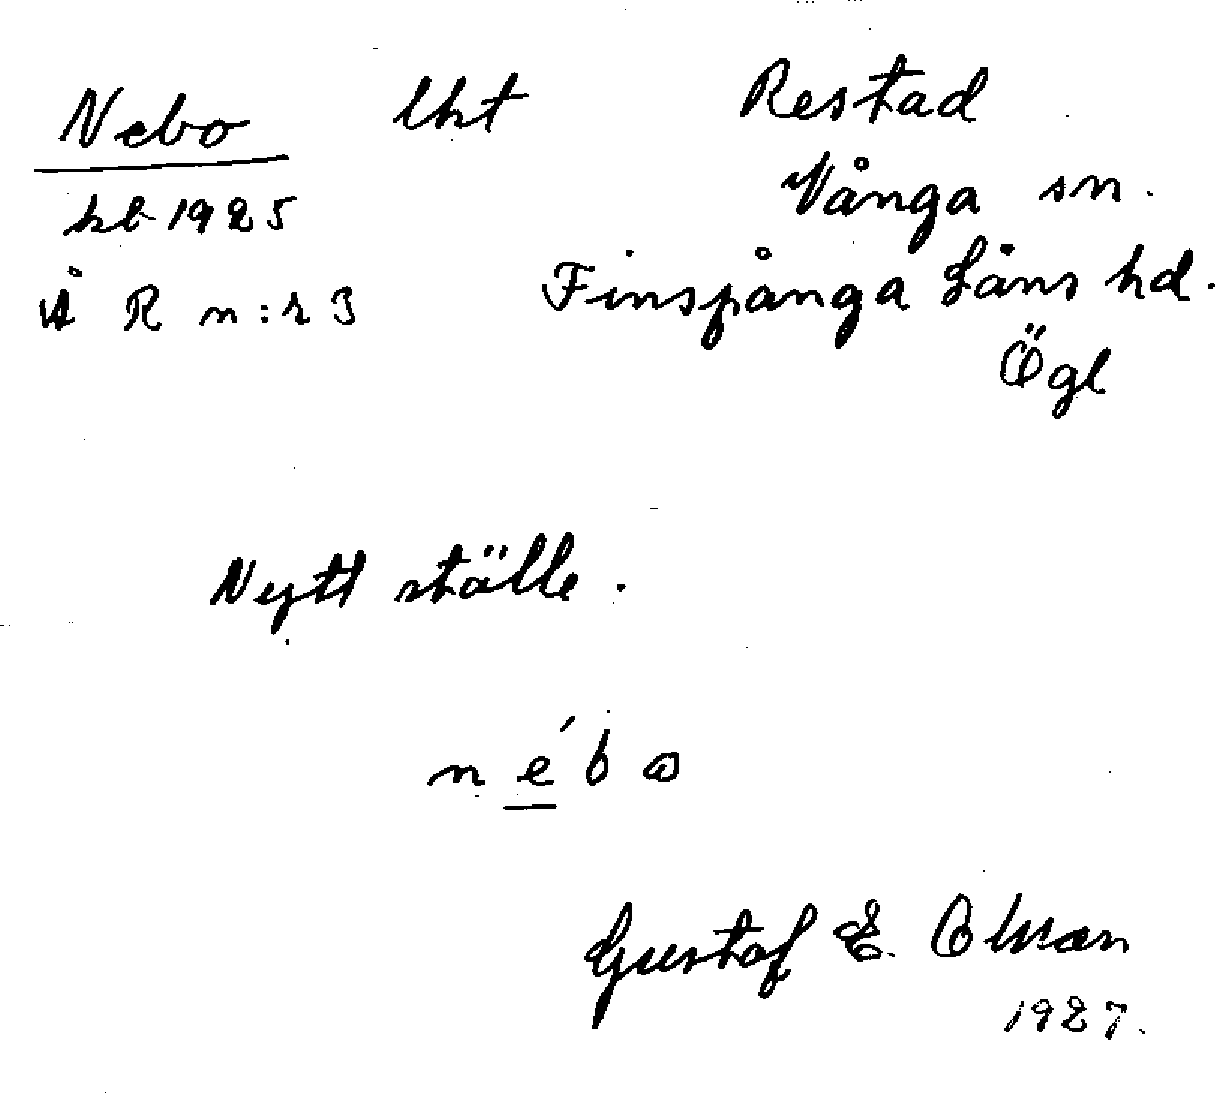 Nebo lht Restad
kb 1925 Vånga sn.
Å R n:r 3 Finspånga Läns hd.
Ögl
Nytt ställe.
nébo
Gustaf E. Olsson
1927.